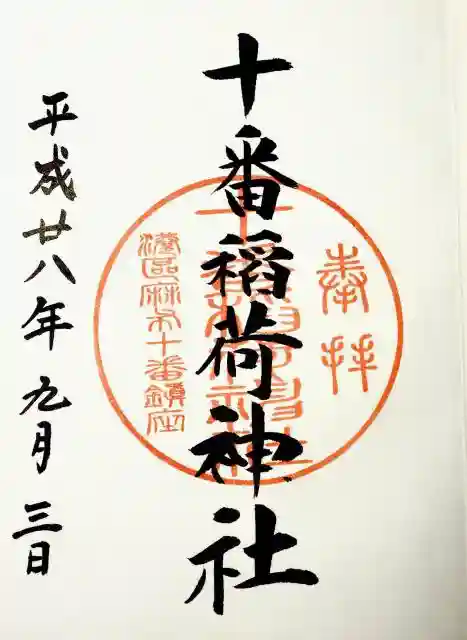 奉拝
十番稲荷神社
十番稲荷神社
港区麻布十番鎮座
平成廿八年九月三日